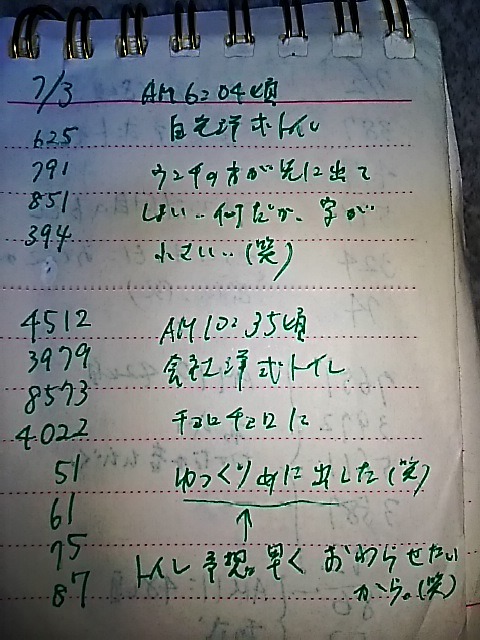 7/3 AM6:04頃
625 自宅洋式トイレ
791 ウンチの方が先に出て
851 しまい‥何だか、字が
394 小さい‥(笑)
4512 AM10:35頃
3979 会社洋式トイレ
8573 チョロチョロに
4022
51 ゆっくりめに出した(笑)
61 ↑
75 トイレ予想。早くおわらせたい
87 から。(笑)